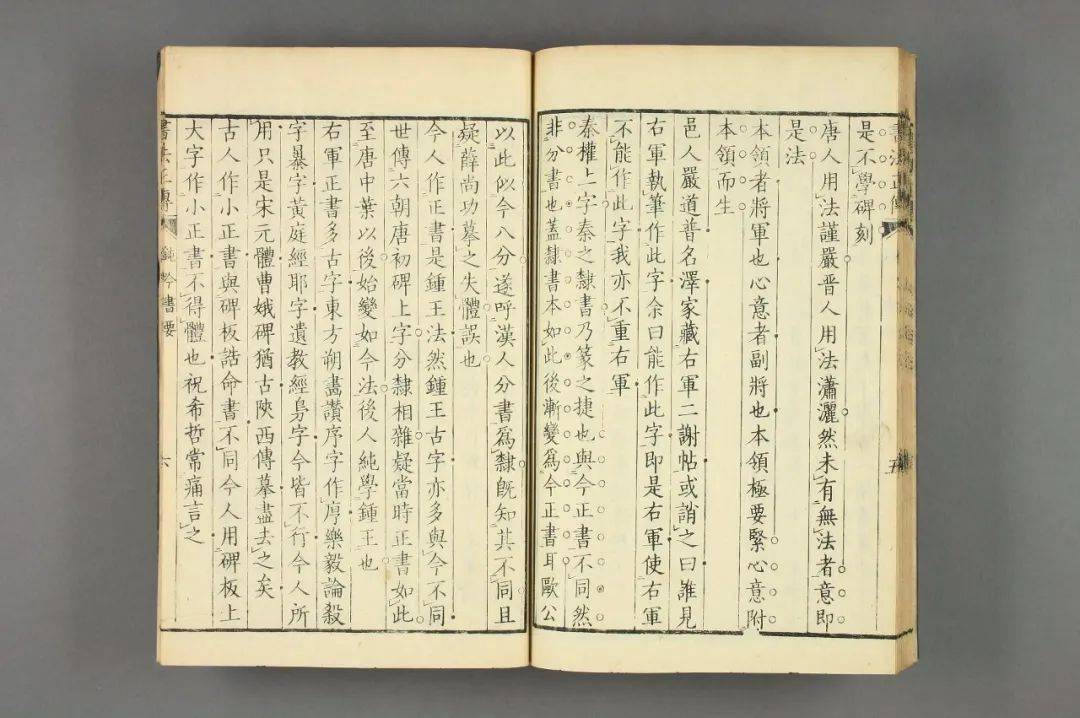 書法正傳
五
是不學碑刻
唐人用法謹嚴晋人用法瀟灑然未有無法者意即
是法
本領者將軍也心意者副將也本領極要緊心意附
本領而生
邑人嚴道普名澤家藏右軍二謝帖或誚之曰誰見
右軍執筆作此字余曰能作此字即是右軍使右軍
不能作此字我亦不重右軍
秦權上字秦之隸書乃篆之捷也與今正書不同然
非分書也蓋隸書本如此後漸變爲今正書耳歐公
以此似今八分遂呼漢人分書爲隸旣知其不同且
疑薛尚功摹之失體誤也
今人作正書是鍾王法然鍾王古字亦多與今不同
世傳六朝唐初碑上字分隸相雜疑當時正書如此
至唐中葉以後始變如今法後人純學鍾王也
右軍正書多古字東方朔畵讃序字作㡳樂毅論殺
字暴字黃庭經耶字遺教經㫷字今皆不行今人所
用只是宋元體曹娥碑猶古陝西傳摹盡去之矣
古人作小正書與碑板誥命書不同今人用碑板上
大字作小正書不得體也祝希哲常痛言之
書法正傳
鈍吟書要
六